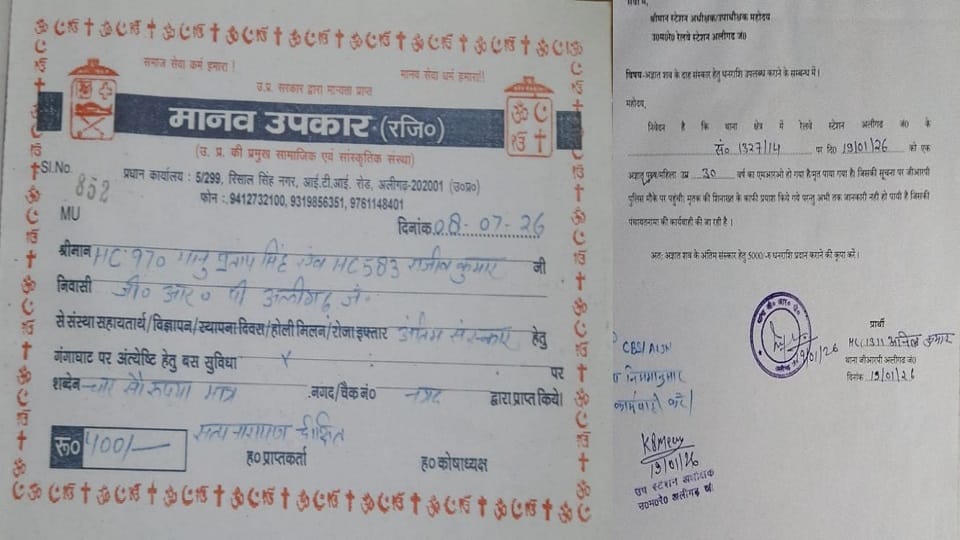 समाज सेवा धर्म हमारा !
मानव सेवा धर्म हमारा!!
उ.प्र. सरकार द्वारा मान्यता प्राप्त
मानव उपकार (रजि०)
(उ. प्र. की प्रमुख सामाजिक एवं सांस्कृतिक संस्था)
SI.No. 852
प्रधान कार्यालय : 5/299, रिसाल सिंह नगर, आई.टी.आई. रोड, अलीगढ़-202001 (उ०प्र०)
फोन : 9412732100, 9319856351, 9761148401
MU
दिनांक 08-07-26
श्रीमान HC 970 भानु प्रताप सिंह एंव HC 583 राजीव कुमार जी
निवासी जी० आर० पी अलीगढ़ जं.
से संस्था सहायतार्थ/विज्ञापन/स्थापना दिवस/होली मिलन/रोजा इफ्तार अंतिम संस्कार हेतु
गंगाघाट पर अंत्येष्टि हेतु बस सुविधा x पर
शब्देन चार सौ रूपया मात्र नगद/चैक नं० नगद द्वारा प्राप्त किये।
रू० 400/-
सत्य नारायण दीक्षित
ह० प्राप्तकर्ता
ह० कोषाध्यक्ष
सेवा में,
श्रीमान स्टेशन अधीक्षक/उपाधीक्षक महोदय
उ०म०रे० रेलवे स्टेशन अलीगढ जं०
विषय-अज्ञात शव के दाह संस्कार हेतु धनराशि उपलब्ध कराने के सम्बन्ध में।
महोदय,
निवेदन है कि थाना क्षेत्र में रेलवे स्टेशन अलीगढ जं० के
सं० 1327/14 पर दि० 19/01/26 को एक
अज्ञात पुरूष/महिला उम्र 30 वर्ष का एमआरओ हो गया है/मृत पाया गया है। जिसकी सूचना पर जीआरपी
पुलिस मौके पर पहुंची; मृतक की शिनाख्त के काफी प्रयास किये गये परन्तु अभी तक जानकारी नही हो पायी है जिसकी
पंचायतनामा की कार्यवाही की जा रही है ।
अतः अज्ञात शव के अंतिम संस्कार हेतु 5000 -रु धनराशि प्रदान कराने की कृपा करें ।
प्रार्थी
HC 1311 अनिल कुमार
थाना जीआरपी अलीगढ जं०
दिनांक 19/01/26
19/01/26
CBS/ALJN
नियमानुसार
कार्यवाही करें।
19/01/26
उप स्टेशन अधीक्षक
उ०म०रे० अलीगढ़ जं.